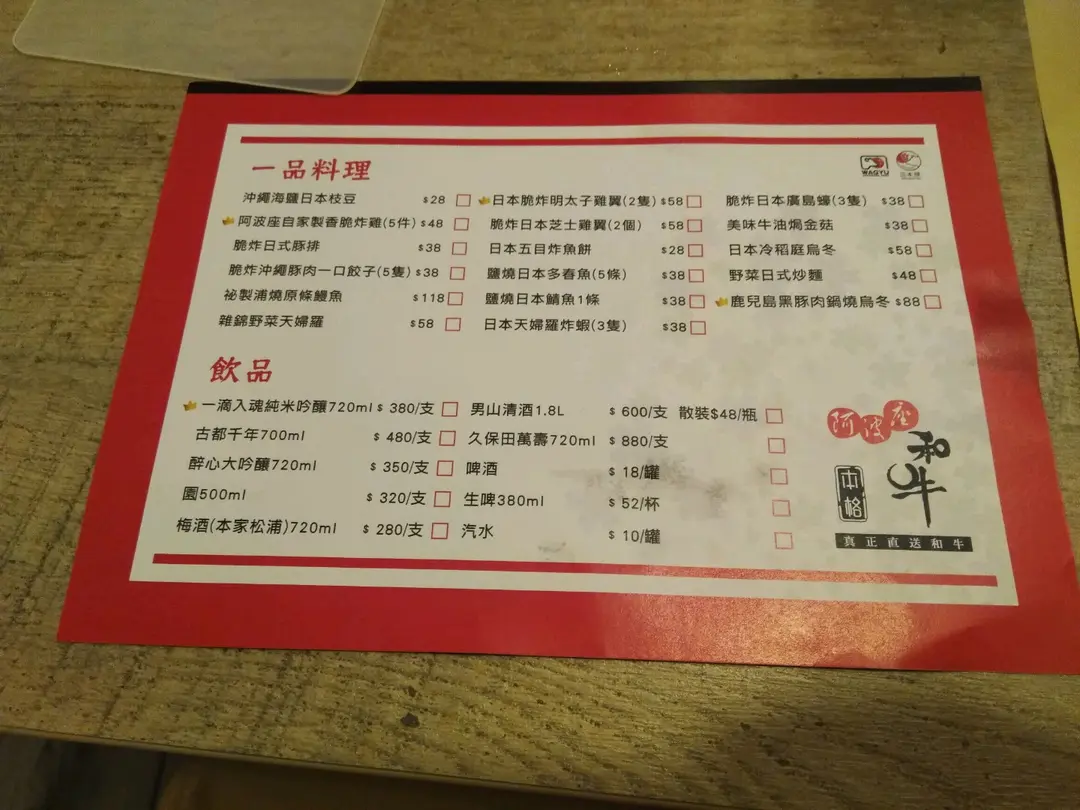 一品料理
沖繩海鹽日本枝豆 $28
阿波座自家製香脆炸雞(5件) $48
脆炸日式豚排 $38
脆炸沖繩豚肉一口餃子(5隻) $38
祕製浦燒原條鰻魚 $118
雜錦野菜天婦羅 $58
日本脆炸明太子雞翼(2隻) $58
脆炸日本芝士雞翼(2個) $58
日本五目炸魚餅 $28
鹽燒日本多春魚(5條) $38
鹽燒日本鯖魚1條 $38
日本天婦羅炸蝦(3隻) $38
WAGYU
脆炸日本廣島蠔(3隻) $38
美味牛油焗金菇 $38
日本冷稻庭烏冬 $58
野菜日式炒麵 $48
鹿兒島黑豚肉鍋燒烏冬 $88
飲品
一滴入魂純米吟釀720ml $ 380/支
古都千年700ml $ 480/支
醉心大吟釀720ml $ 350/支
園500ml $ 320/支
梅酒(本家松浦)720ml $ 280/支
男山清酒1.8L $ 600/支 散裝$48/瓶
久保田萬壽720ml $ 880/支
啤酒 $ 18/罐
生啤380ml $ 52/杯
汽水 $ 10/罐
阿波座
和牛
本格
真正直送和牛